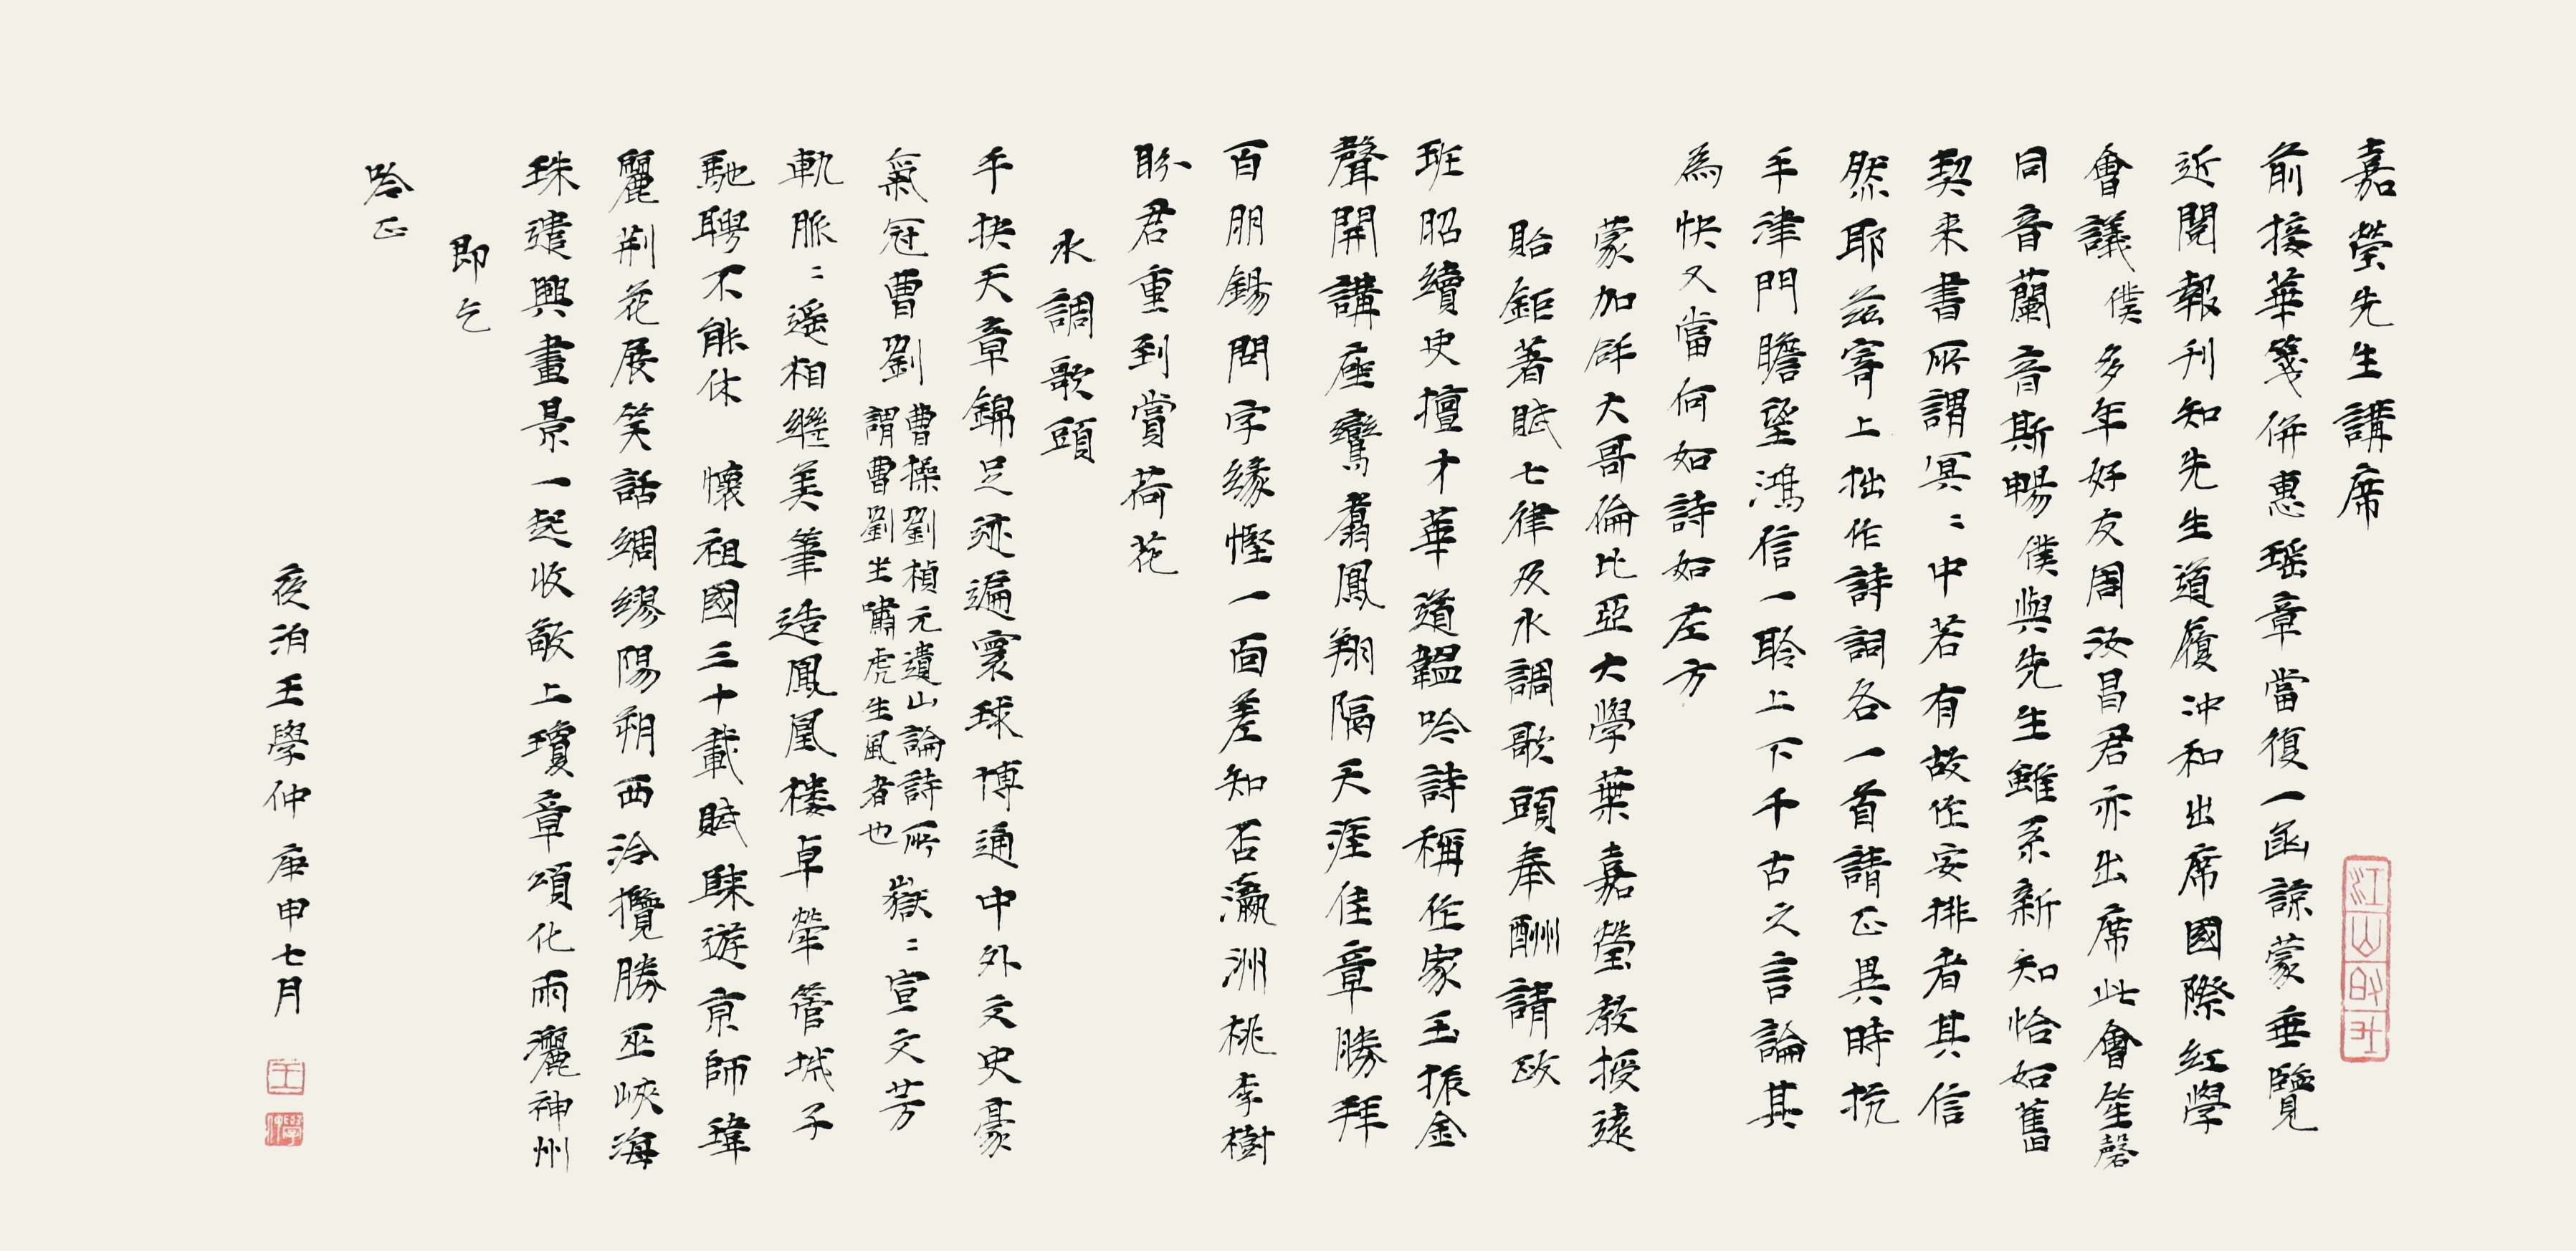 嘉瑩先生講席
前接華箋併惠瑶章當復一函諒蒙垂覽
近閱報刊知先生道履冲和出席國際紅學
會議僕多年好友周汝昌君亦出席此會笙磬
同音蘭音斯暢僕與先生雖系新知恰如舊
契来書所謂冥〻中若有故作安排者其信
然耶兹寄上拙作詩詞各一首請正異時抗
手津門瞻望鴻信一聆上下千古之言論其
為快又當何如詩如左方
蒙加拏大哥倫比亞大學葉嘉瑩教授遠
貽鉅著賦七律及水調歌頭奉酬請政
班昭續史擅才華道韞吟詩稱作家玉振金
聲開講座鸞翥鳳翔隔天涯佳章勝拜
百朋錫問字緣慳一面差知否瀛洲桃李樹
盼君重到賞荷花
水調歌頭
手抉天章錦足迹遍寰球博通中外文史豪
氣冠曹劉曹操劉楨元遺山論詩所謂曹劉坐嘯虎生風者也嶽〻宣文芳
軌脈〻遥相繼美筆造鳳凰樓卓犖管城子
馳騁不能休懷祖國三十載賦騋遊京師瑋
麗荆花展笑話綢繆陽朔西泠攬勝巫峽海
珠遣興畫景一起收敬上瓊章頌化雨灑神州
即乞
吟正
夜泊王學仲庚申七月